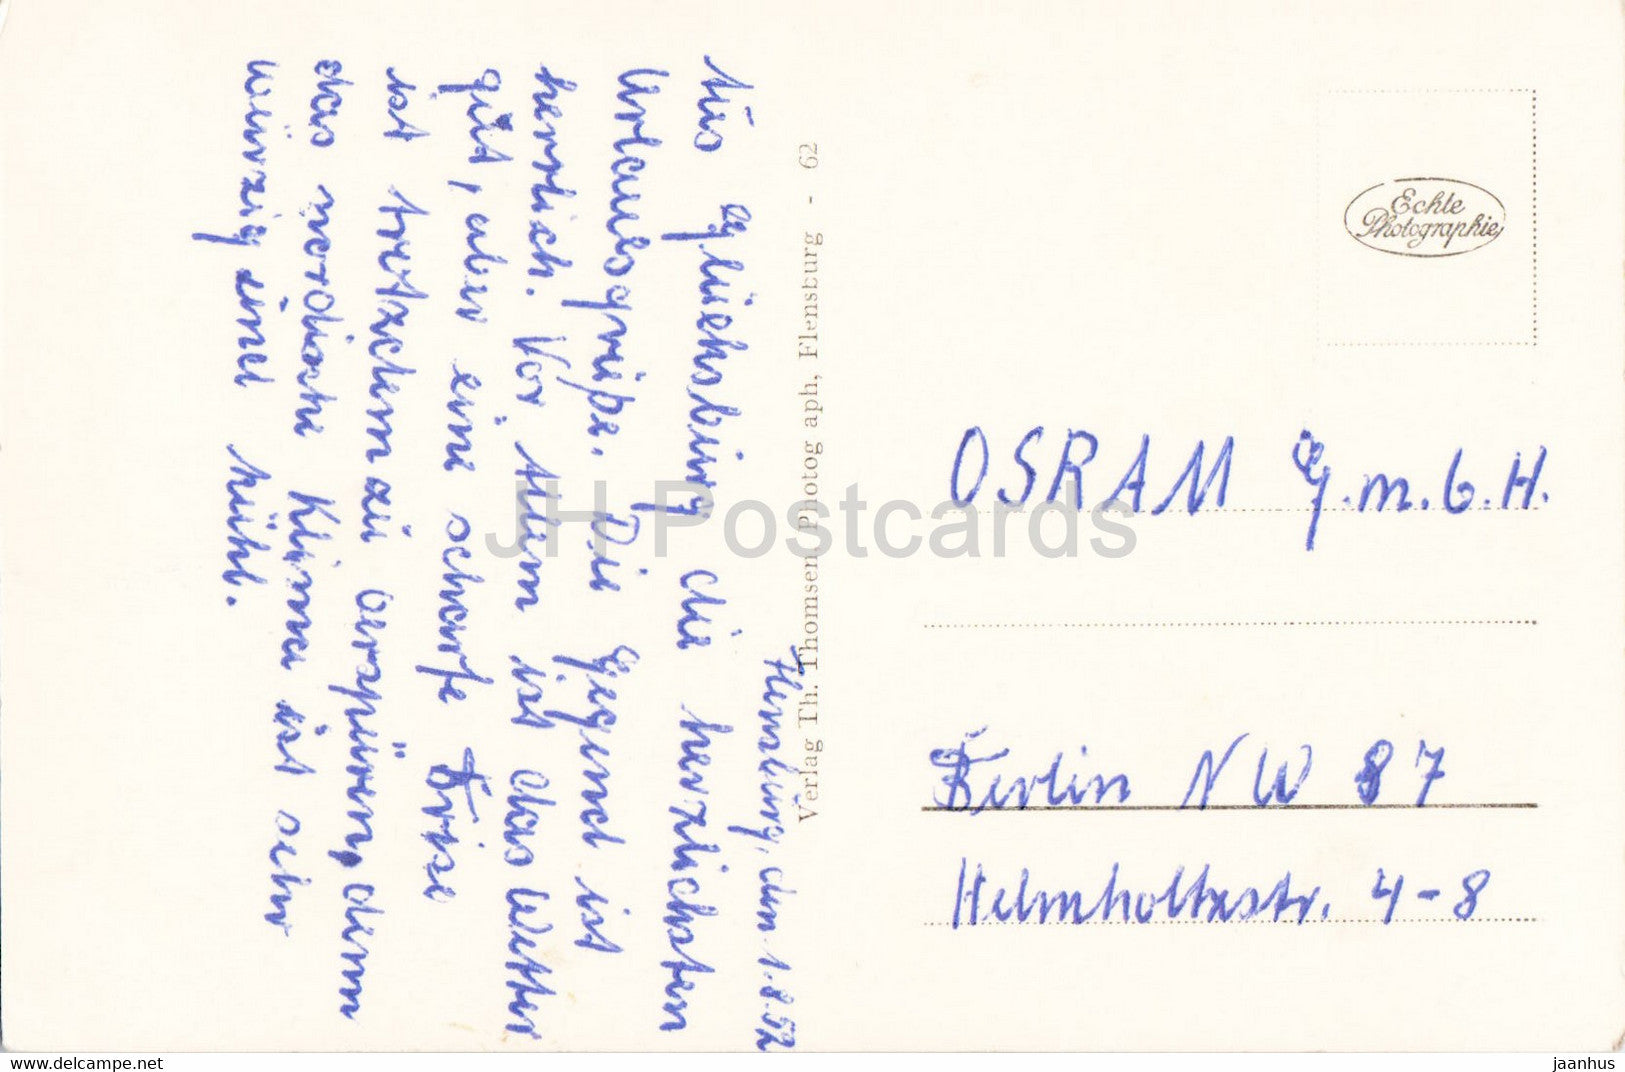 Flensburg, den 1.8.52
Aus Glücksburg die herzlichsten
Urlaubsgrüße. Die Gegend ist
herrlich. Vor Allem ist das Wetter
gut, aber eine scharfe Brise
ist trotzdem zu verspüren, denn
das nordische Klima ist sehr
würzig und kühl.
Verlag Th. Thomsen, Photog aph, Flensburg - 62
Echte
Photographie
OSRAM G.m.b.H.
Berlin NW 87
Helmholtzstr. 4-8
JH Postcards
www.delcampe.net
jaanhus